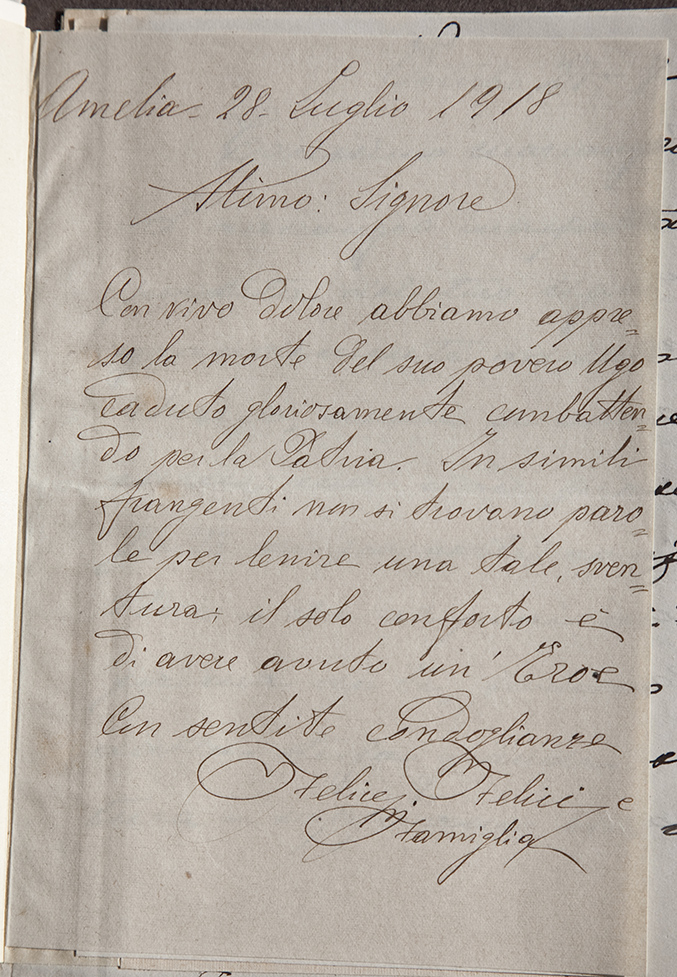 Amelia - 28 - Luglio 1918
Stimo: Signore
Con vivo dolore abbiamo appre=
so la morte del suo povero Ugo
caduto gloriosamente combatten=
do per la Patria. In simili
frangenti non si trovano paro=
le per lenire una tale, sven=
tura; il solo conforto è
di avere avuto un' Eroe
Con sentite condoglianze
Felice Felici e
Famiglia